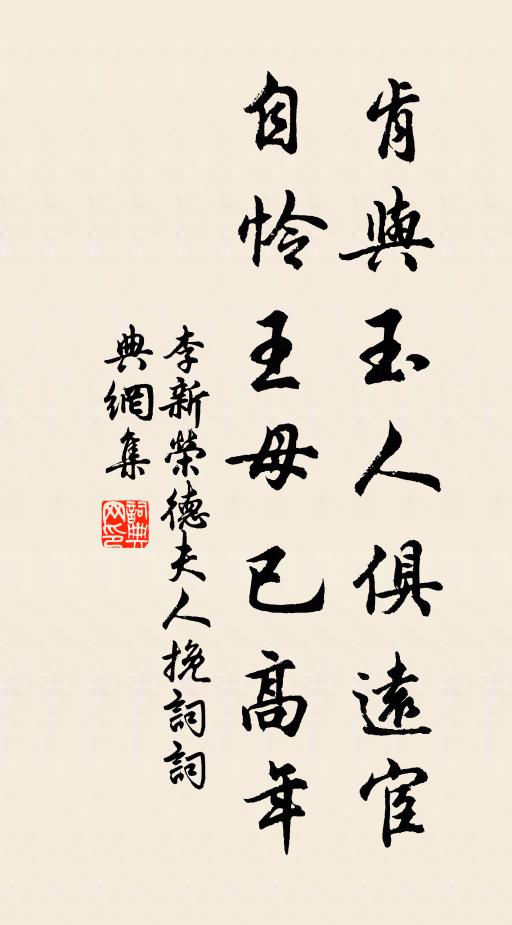 肯與玉人俱遠宦
自怜王母已高年
李新榮德夫人挽詞詞
典網集
詞典網印